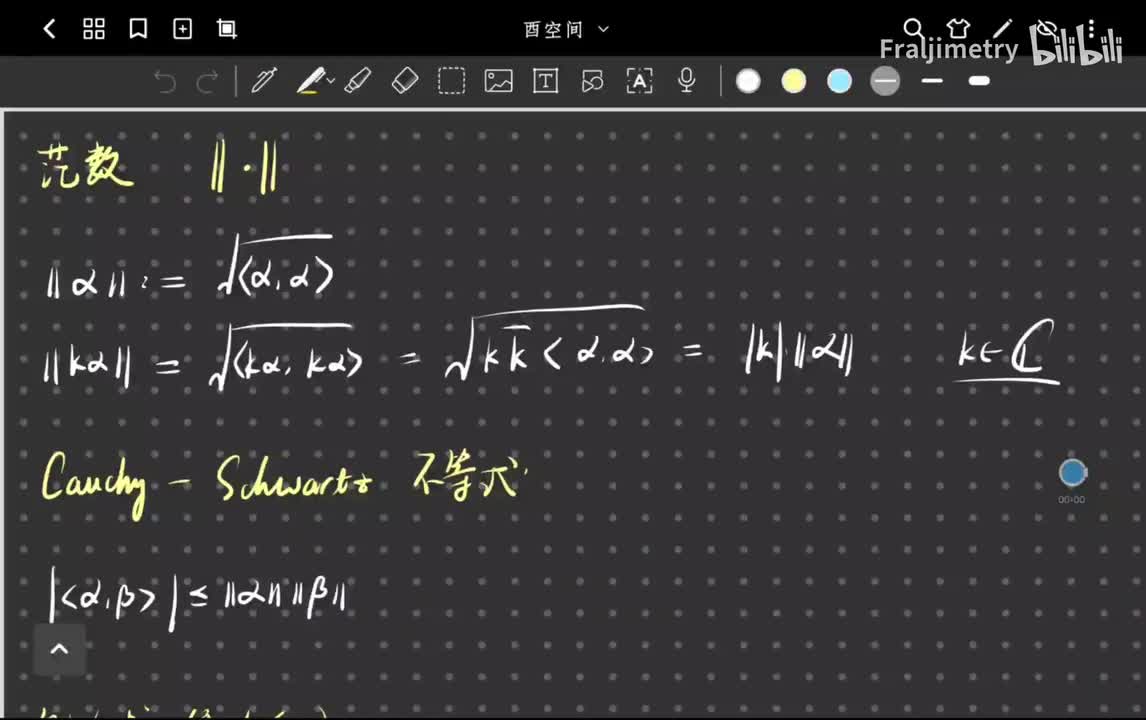 酉空间
Fraljimetry bilibili
范数 ||·||
||α|| := √<α,α>
||kα|| = √<kα, kα> = √k k̄ <α,α> = |k|·||α|| k∈ℂ
Cauchy – Schwartz 不等式
00:00
|<α,β>| ≤ ||α|| ||β||